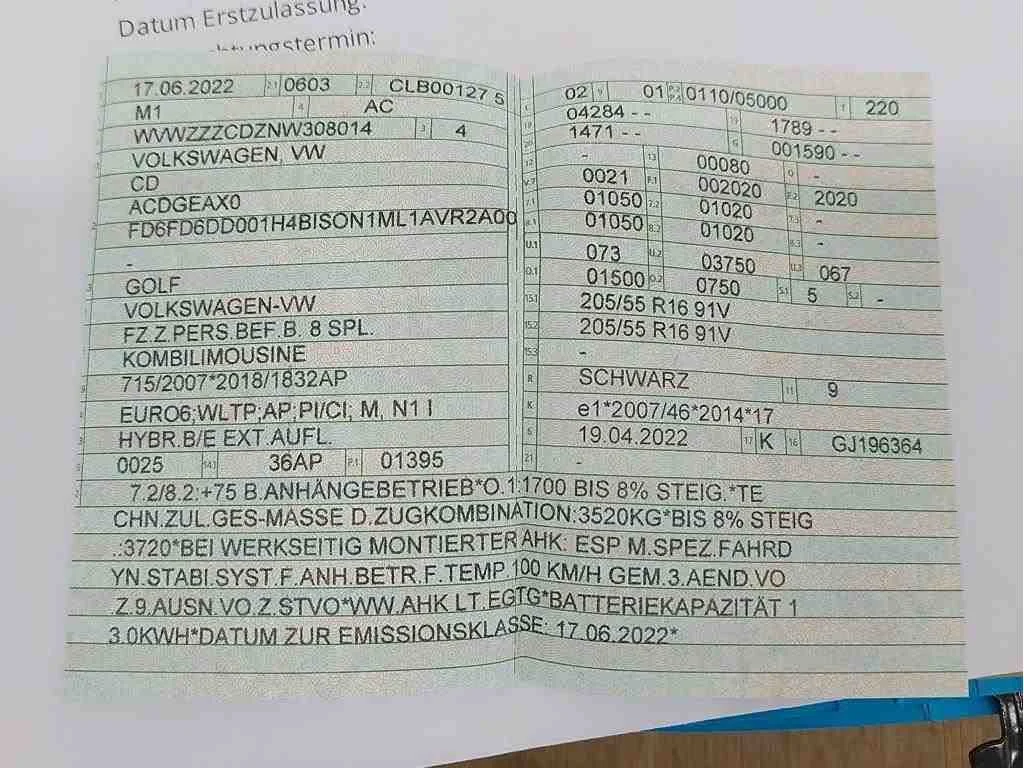 Datum Erstzulassung:
17.06.2022 2.1 0603 2.2 CLB00127 5
M1 4 AC
WVWZZZCDZNW308014 3 4
VOLKSWAGEN, VW
CD
ACDGEAX0
FD6FD6DD001H4BISON1ML1AVR2A00
-
GOLF
VOLKSWAGEN-VW
FZ.Z.PERS.BEF.B. 8 SPL.
KOMBILIMOUSINE
715/2007*2018/1832AP
EURO6;WLTP;AP;PI/CI; M, N1 I
HYBR.B/E EXT.AUFL.
0025 14.1 36AP P.1 01395
02 9 01 P.2 P.4 0110/05000 T 220
L 04284 - - 19 1789 - -
1471 - - G 001590 - -
12 - 13 00080 Q -
V.7 0021 F.1 002020 F.2 2020
7.1 01050 7.2 01020 7.3 -
8.1 01050 8.2 01020 8.3 -
U.1 073 U.2 03750 U.3 067
O.1 01500 O.2 0750 S.1 5 S.2 -
15.1 205/55 R16 91V
15.2 205/55 R16 91V
15.3 -
R SCHWARZ 11 9
K e1*2007/46*2014*17
6 19.04.2022 17 K 16 GJ196364
21 -
7.2/8.2:+75 B.ANHÄNGEBETRIEB*O.1:1700 BIS 8% STEIG.*TE
CHN.ZUL.GES-MASSE D.ZUGKOMBINATION:3520KG*BIS 8% STEIG
.:3720*BEI WERKSEITIG MONTIERTER AHK: ESP M.SPEZ.FAHRD
YN.STABI.SYST.F.ANH.BETR.F.TEMP.100 KM/H GEM.3.AEND.VO
.Z.9.AUSN.VO.Z.STVO*WW.AHK LT.EGTG*BATTERIEKAPAZITÄT 1
3.0KWH*DATUM ZUR EMISSIONSKLASSE: 17.06.2022*